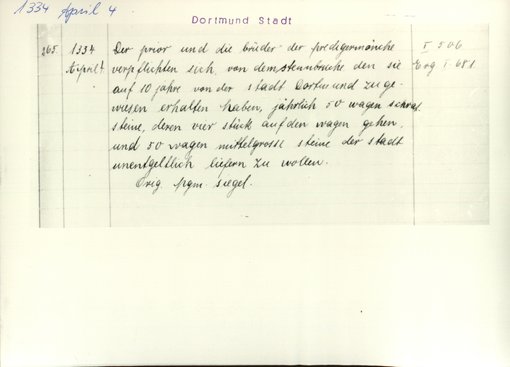 1334 April 4
Dortmund Stadt
265. 1334 Der prior und die brüder der predigermönche I 506
April 4. verpflichten sich, von dem steinbruche den sie Erg I 681
auf 10 jahre von der stadt Dortmund zuge-
wiesen erhalten haben, jährlich 50 wagen
steine, deren vier stück auf den wagen gehen,
und 50 wagen mittelgrosse steine der stadt
unentgeltlich liefern zu wollen.
Orig. pgm. siegel.